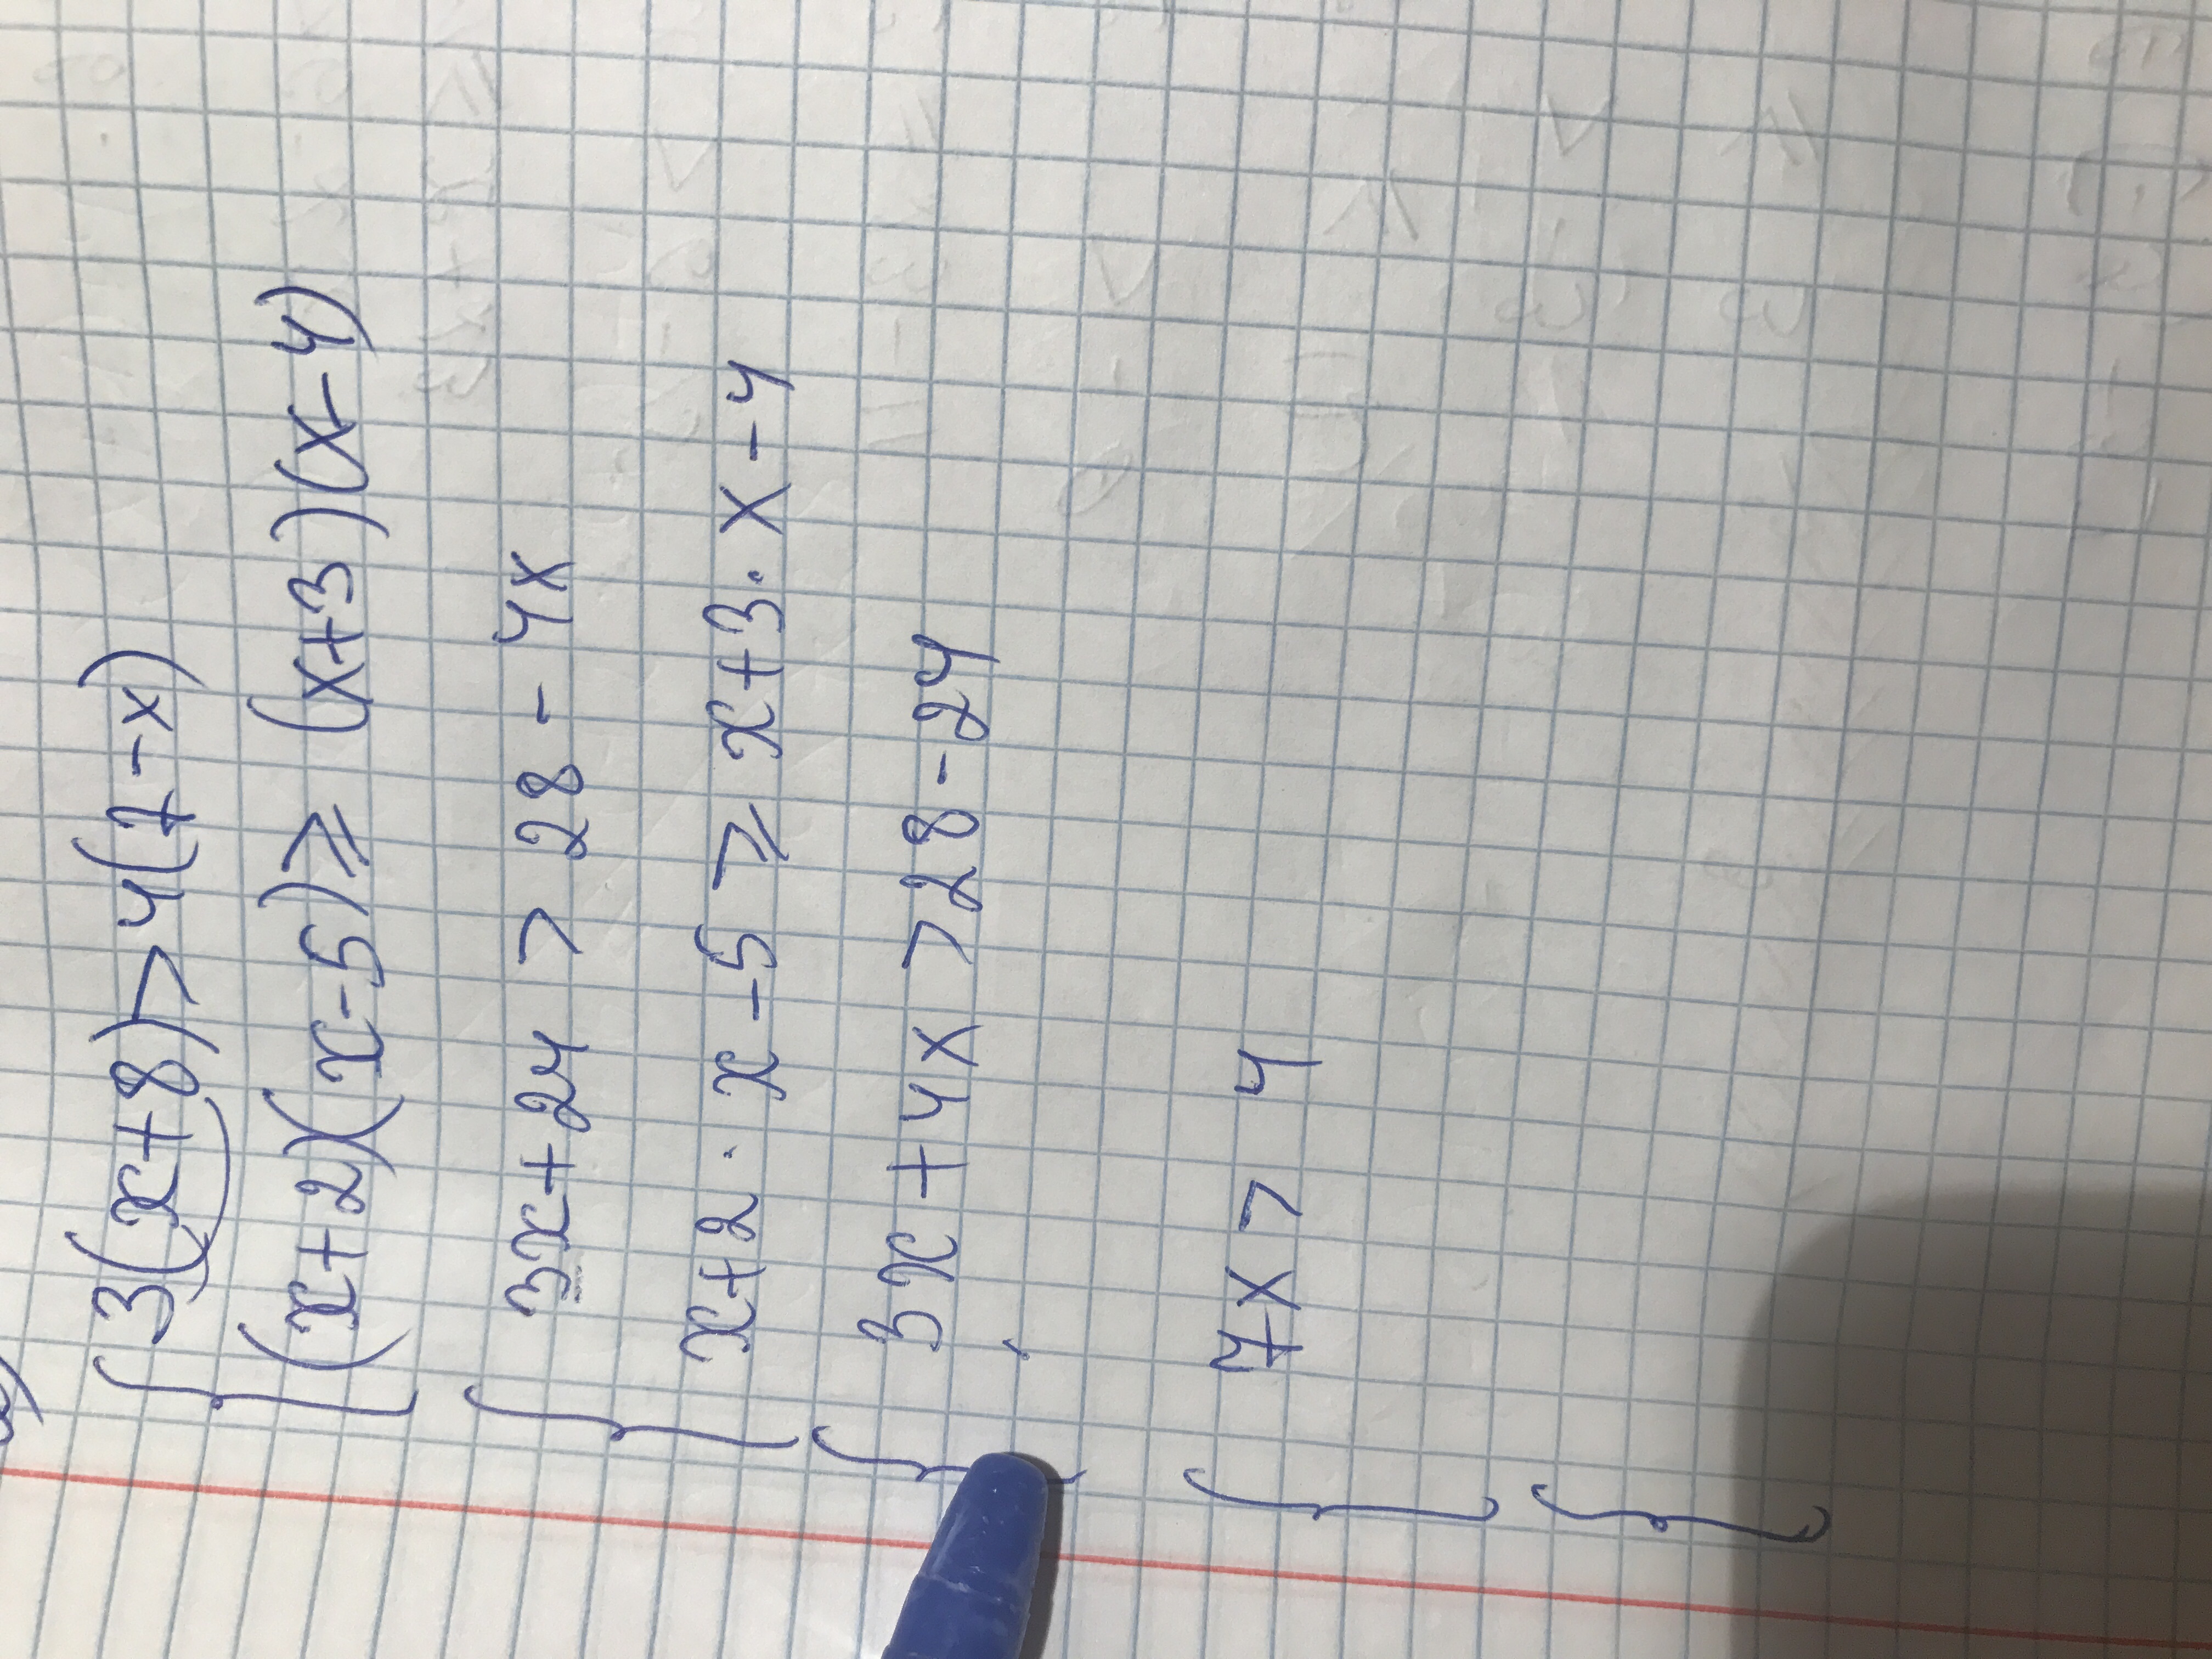 3(x+8)>4(7-x)
(x+2)(x-5)⩾(x+3)(x-4)
3x+24>28-4x
x+2·x-5⩾x+3·x-4
3x+4x>28-24
7x>4